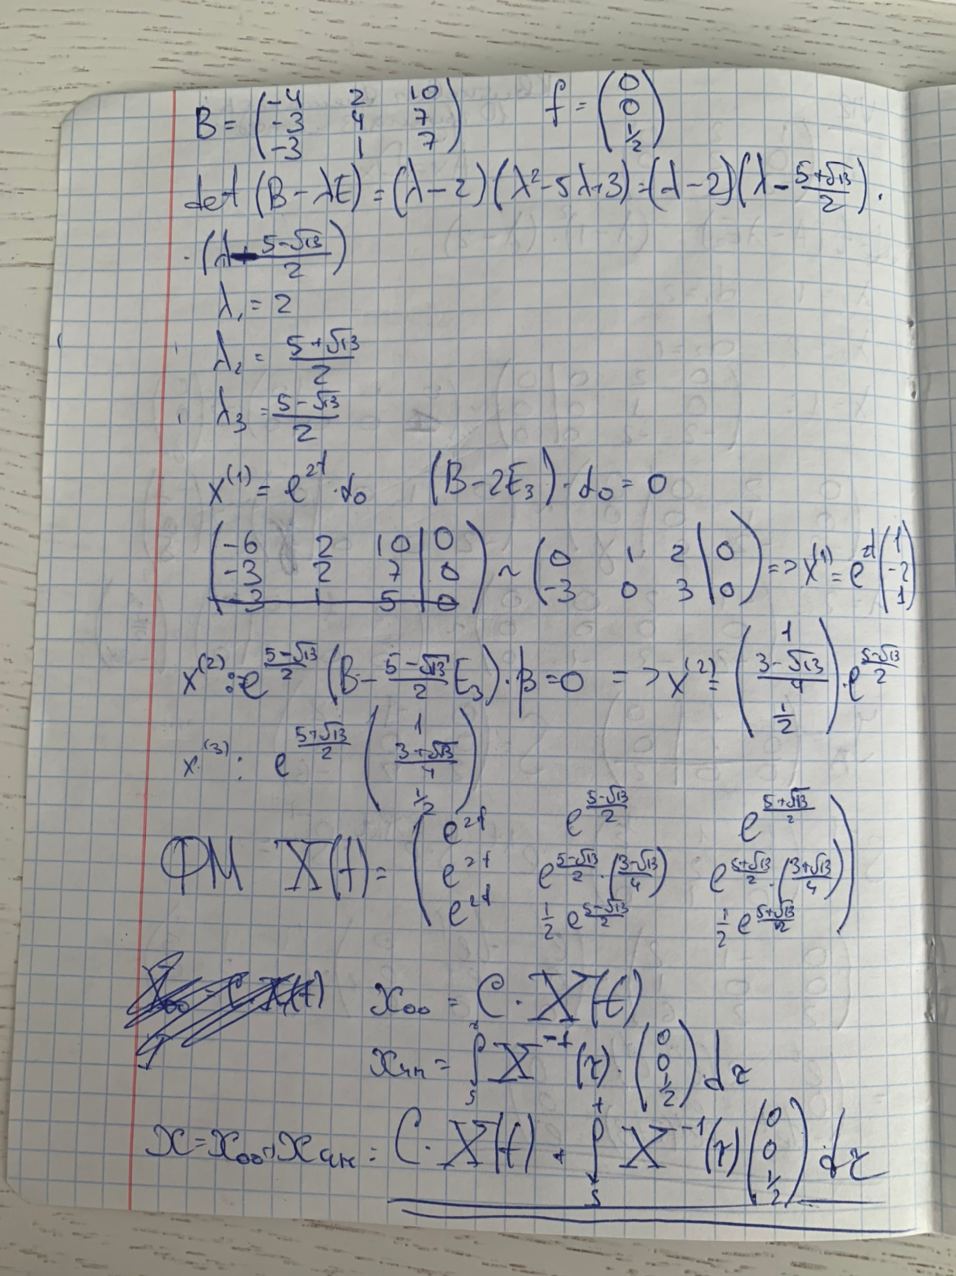 B = (-4 2 10; -3 4 7; -3 1 7) f = (0; 0; 1/2)
det (B - λE) = (λ - 2)(λ² - 5λ + 3) = (λ - 2)(λ - (5+√13)/2) ·
· (λ - (5-√13)/2)
λ₁ = 2
λ₂ = (5+√13)/2
λ₃ = (5-√13)/2
x⁽¹⁾ = e^{2t} · d₀ (B - 2E₃) · d₀ = 0
(-6 2 10 | 0; -3 2 7 | 0; -3 1 5 | 0) ~ (0 1 2 | 0; -3 0 3 | 0) => x⁽¹⁾ = e^{2t} (1; -2; 1)
x⁽²⁾: e^{(5-√13)/2} (B - (5-√13)/2 E₃) · β = 0 => x⁽²⁾ = (1; (3-√13)/4; 1/2) · e^{(5-√13)/2}
x⁽³⁾: e^{(5+√13)/2} (1; (3+√13)/4; 1/2)
ФМ X(t) = (e^{2t} e^{(5-√13)/2} e^{(5+√13)/2}; e^{2t} e^{(5-√13)/2} · ((3-√13)/4) e^{(5+√13)/2} · ((3+√13)/4); e^{2t} 1/2 e^{(5-√13)/2} 1/2 e^{(5+√13)/2})
x₀₀ = C · X(t)
xчн = ∫ₛ X⁻¹(τ) · (0; 0; 1/2) · dτ
x = x₀₀ + xчн = C · X(t) + ∫ₛᵗ X⁻¹(τ) (0; 0; 1/2) · dτ